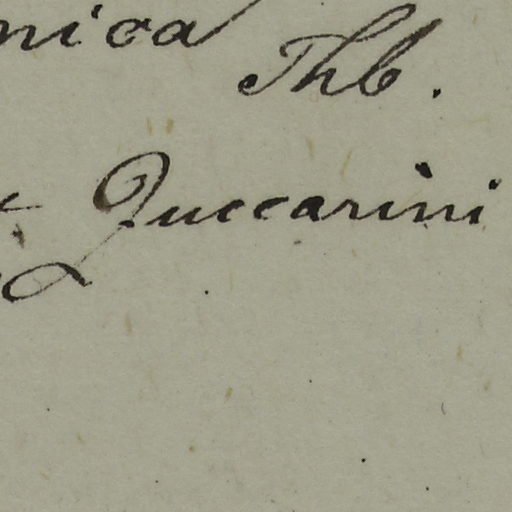 nica
Thb.
t Zuccarini